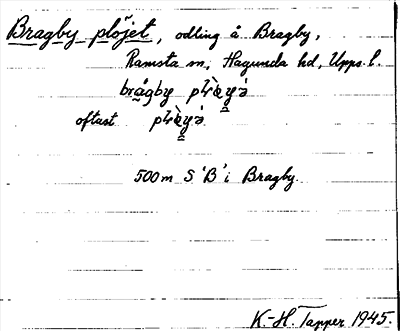 Bragby plöjet, odling å Bragby,
Ramsta sn, Hagunda hd, Upps. l.
oftast
500 m S 'B' i Bragby.
K.-H. Tapper 1945.